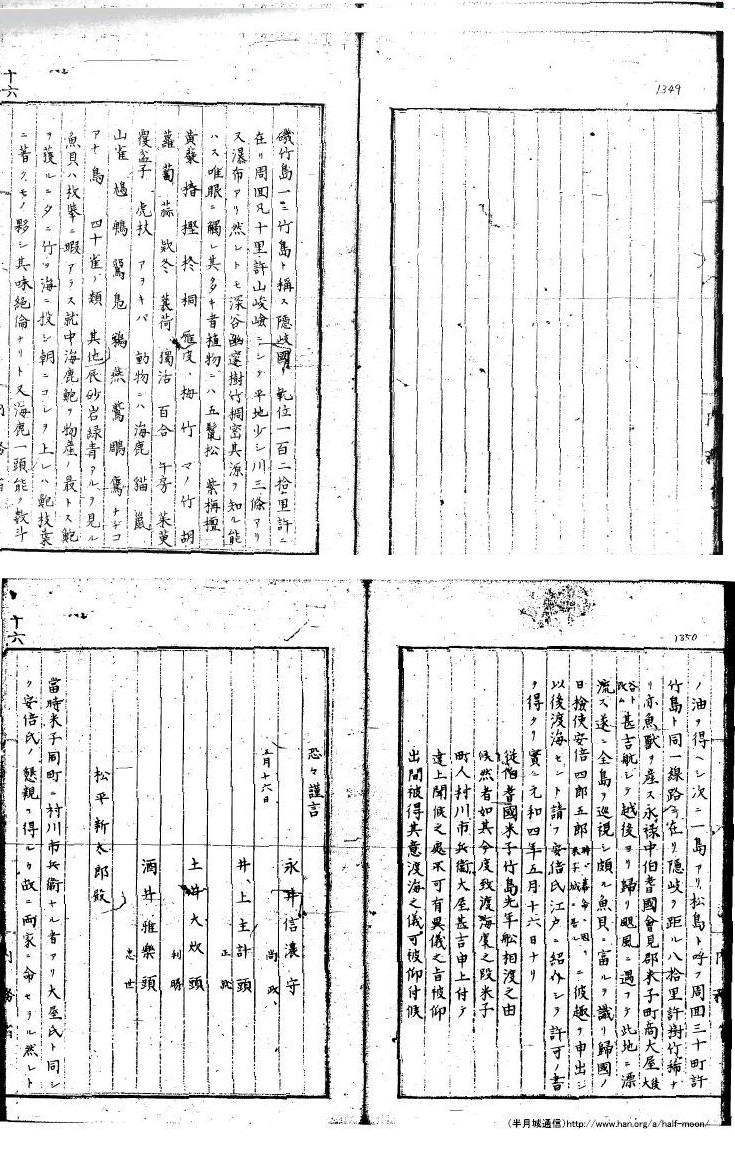 1349
磯竹島一ニ竹島ト稱ス隱岐國ノ乾位一百二拾里許ニ
在リ周回凡十里許山峻嶮ニシテ平地少シ川三條アリ
又瀑布アリ然レトモ深谷幽邃樹竹稠密其源ヲ知ル能
ハス唯眼ニ觸レ其多キ者植物ニハ五鬣松 紫栴檀
黄蘗 椿 樫 柊 桐 雁皮 栂 竹 マノ竹 胡
蘿蔔 蒜 欵冬 蘘荷 獨活 百合 牛房 茱萸
覆盆子 虎杖 アヲキバ 動物ニハ海鹿 猫 鼠
山雀 鳩 鵯 鶸 鳧 鵜 燕 鷲 鵰 鷹 ナデコ
アナ鳥 四十雀ノ類 其他辰砂岩緑青アルヲ見ル
魚貝ハ枚擧ニ暇アラス就中海鹿鮑ヲ物産ノ最トス鮑
ヲ獲ルニ夕ニ竹ヲ海ニ投シ朝ニコレヲ上レハ鮑枝葉
ニ着クモノ夥シ其味絶倫ナリト又海鹿一頭能ク數斗
十六
内務省
1350
ノ油ヲ得ヘシ次ニ一島アリ松島ト呼フ周回三十町許
竹島ト同一線路ニ在リ隱岐ヲ距ル八拾里許樹竹稀ナ
リ亦魚獸ヲ産ス永祿中伯耆國會見郡米子町商大屋後大
谷ト改ム甚吉航シテ越後ヨリ歸リ颶風ニ遇フテ此地ニ漂
流ス遂ニ全島ヲ巡視シ頗ル魚貝ニ富ルヲ識リ歸國ノ
日檢使安倍四郎五郎時ニ幕命ニ因リ米子城ニ居ルニ彼趣ヲ申出シ
以後渡海セント請フ安倍氏江戸ニ紹介シテ許可ノ書
ヲ得タリ實ニ元和四年五月十六日ナリ
從伯耆國米子竹島先年船相渡之由
候然者如其今度致渡海度之段米子
町人村川市兵衞大屋甚吉申上付テ
達上聞候之處不可有異儀之旨被仰
出間被得其意渡海之儀可被仰付候
恐々謹言
五月十六日
永井信濃守
尚政
井上主計頭
正就
土井大炊頭
利勝
酒井雅樂頭
忠世
松平新太郎殿
當時米子同町ニ村川市兵衞ナル者アリ大屋氏ト同シ
ク安倍氏ノ懇親ヲ得ルカ故ニ兩家ニ命セラル然レト
十六
内務省
(半月城通信)http://www.han.org/a/half-moon/